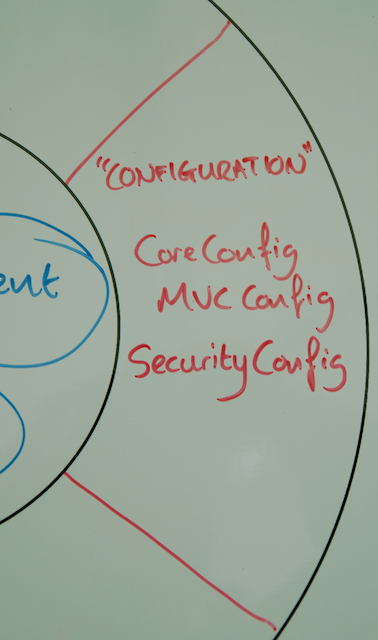 "CONFIGURATION"
CoreConfig
MVC Config
ent
SecurityConfig